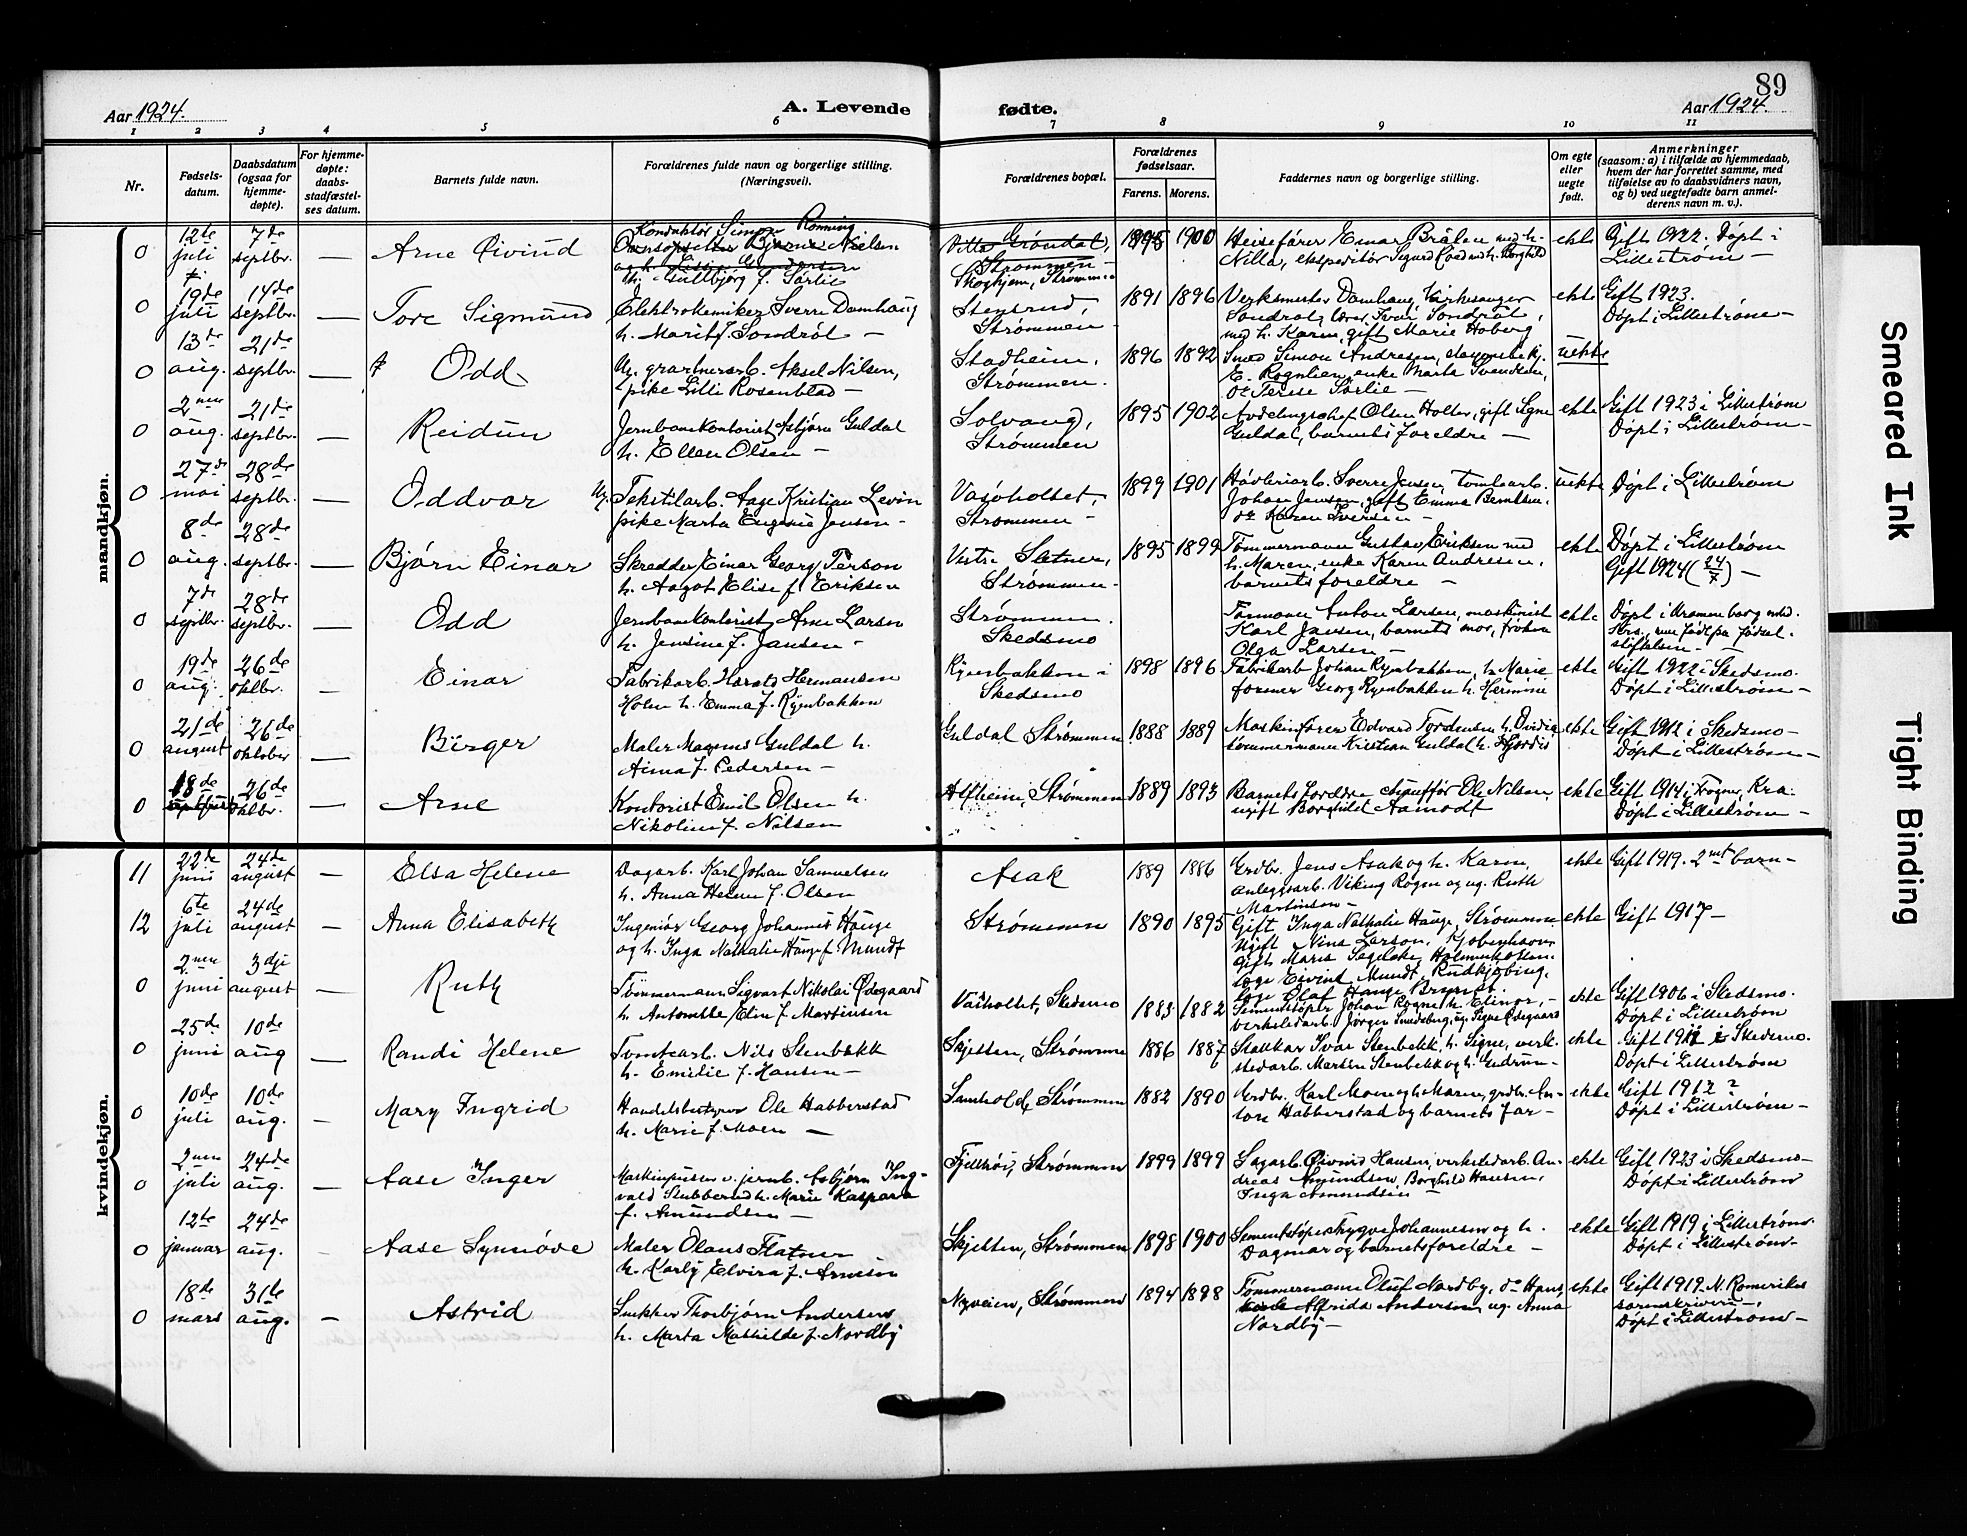 89
Aar 1924.
A. Levende
fødte.
Aar 1924.
1 2 3 4 5 6 7 8 9 10 11
Nr.
Fødsels-
datum.
Daabsdatum
(ogsaa for
hjemme-
døpte).
For hjemme-
døpte:
daabs-
stadfæstel-
ses datum.
Barnets fulde navn.
Forældrenes fulde navn og borgerlige stilling.
(Næringsvei).
Forældrenes bopæl.
Forældrenes
fødselsaar.
Farens. Morens.
Faddernes navn og borgerlige stilling.
Om egte
eller
uegte
født.
Anmerkninger
(saasom: a) i tilfælde av hjemmedaab,
hvem der har forrettet samme, med
tilføielse av to daabsvidners navn,
og b) ved uegtefødte barn anmel-
derens navn m. v.).
mandkjøn.
0 12te juli 7de septbr. — Arne Øivind
Konduktør Simen Rønning
Gullbjørg f. Sørlie
Villa Grøndal,
Strømmen —
Skoghjem, Strømmen
1895 1900
Heisefører Einar Bråten med h.
Nilla, ekspeditør Sigurd
ekte
Gift 1922. Døpt i
Lillestrøm —
0 19de juli 14de septbr. — Tore Sigmund
Elektrokemiker Sverre Damhaug
h. Marit f. Sondrål —
Stensrud,
Strømmen —
1891 1896
Verksmester Damhaug, Kirkesanger
Sondrål, lærer Ivar Sondrål,
med h. Karen, gift Marie Hoberg
ekte
Gift 1923.
Døpt i Lillestrøm —
0 13de aug. 21de septbr. — Odd
Ug. gartnerarb. Aksel Nilsen,
pike Lilli Rosenblad —
Stadheim,
Strømmen.
1896 1892
Smed Simon Andresen,
E. Rognlien, enke Marta Svendsen,
do Terese Sørlie —
uekte
0 2nen aug. 21de septbr. — Reidun
Jernbanekontorist Asbjørn Guldal
h. Ellen Olsen —
Solvang,
Strømmen
1895 1902
Avdelingschef Olsen Holter, gift Signe
Guldal, barnets foreldre —
ekte
Gift 1923 i Lillestrøm
Døpt i Lillestrøm —
0 27de mai 28de septbr. — Oddvar
Ug. Tekstilarb. Aage Kristian Levin
pike Marta Eugenie Jensen —
Vasoholtet,
Strømmen —
1899 1901
Høvleriarb. Sverre Jensen, Tomtearb.
Johan Jensen, gift Emma Berntsen,
do Karen Iversen —
uekte
Døpt i Lillestrøm
0 8de aug. 28de septbr. — Bjørn Einar
Skredder Einar Georg Person
h. Aagot Elise f. Eriksen
Vestre Sletner,
Strømmen.
1895 1899
Tømmermann Gustav Eriksen med
h. Maren, enke Karen Andresen,
barnets foreldre —
ekte
Døpt i Lillestrøm
Gift 1924 (24/7) —
0 7de septbr. 28de septbr. — Odd
Jernbanekontorist Arne Larsen
h. Jensine f. Jansen —
Strømmen.
Skedsmo
Formann Anton Larsen, maskinist
Karl Jansen, barnets mor, frøken
Olga Larsen —
ekte
0 19de aug. 26de oktbr. — Einar
Fabrikarb. Harald Hermansen
Holm h. Emma f. Ryenbakken
Ryenbakken i
Skedsmo
1898 1896
Fabrikarb. Johan Ryenbakken, h. Marie
former Georg Ryenbakken h. Hermine
ekte
Gift 1922 i Skedsmo.
Døpt i Lillestrøm —
0 21de august 26de oktober — Birger
Maler Magnus Guldal h.
Aina f. Pedersen —
Guldal Strømmen
1888 1889
Maskinfører Edvard Tordensen h. Ovidia
tømmermann Kristian Guldal h. Hjørdis
ekte
Gift 1912 i Skedsmo —
Døpt i Lillestrøm —
0 18de 26de oktbr. — Arne
Kontorist Emil Olsen h.
Nikoline f. Nilsen
Alfheim, Strømmen
1889 1893
Barnets foreldre chauffør Ole Nilsen,
ugift Borghild Aamodt
ekte
Gift 1914 i Frogner, Kra.
Døpt i Lillestrøm —
kvindekjøn.
11 22de juni 24de august — Elsa Helene
Dagarb. Karl Johan Samuelsen
h. Anna Helene f. Olsen
Asak
1889 1886
Grdbr. Jens Asak og h. Karen,
anleggsarb. Viking Rogne og ug. Ruth
Martinsen —
ekte
Gift 1919. 2net barn —
12 6te juli 24de august — Anna Elisabeth
Ingeniør Georg Johannes Hauge
og h. Inga Nathalie Hauge f. Mundt
Strømmen
1890 1895
Gift Inga Nathalie Hauge, Strømmen
Ugift Nina Larsen, Kjøbenhavn
Gift Maria
Læge Eivind Mundt, Rudkjøbing,
Læge Olaf Hauge
ekte
Gift 1917 —
0 2nen juni 3dje august — Ruth
Tømmermann Sigvart Nikolai Ødegaard
h. Antonette Elin f. Martinsen
Vasholtet, Skedsmo
1883 1882
Sementstøper Johan Rogne h. Elinor, —
verkstedarb. Jørgen Smedsberg, ug. Signe Ødegaard
ekte
Gift 1906 i Skedsmo.
Døpt i Lillestrøm
0 25de juni 10de aug — Randi Helene
Tomtearb. Nils Stenbekk
h. Emilie f. Hansen —
Skjetten, Strømmen
1886 1887
Stallkar Ivar Stenbekk, h. Signe, verk-
stedarb. Martin Stenbekk og h. Gudrun —
ekte
Gift 1911 i Skedsmo.
Døpt i Lillestrøm
0 10de juli 10de aug. — Mary Ingrid
Handelsbestyrer Ole Habberstad
h. Marie f. Moen —
Samhold, Strømmen
1882 1890
Grdbr. Karl Moen og h. Maren, grdbr. An-
ton Habberstad og barnets far —
ekte
Gift 1912?
Døpt i Lillestrøm —
0 2nen juli 24de aug. — Aase Inger
Maskinpusser v. jernb. Asbjørn Ing-
vald Stubberud h. Marie Kaspara
f. Amundsen —
Fjellhøi, Strømmen
1899 1899
Sagarb. Øivind Hansen, verkstedarb. An-
dreas Amundsen, Borghild Hansen,
Inga Amundsen —
ekte
Gift 1923 i Skedsmo —
Døpt i Lillestrøm
0 12te januar 24de aug. — Aase Synnøve
Maler Olaus Flatner
h. Karly Elvira f. Arnesen
Skjetten, Strømmen
1898 1900
Sementstøper Trygve Johannesen og h.
Dagmar og barnets foreldre —
ekte
Gift 1919 i Lillestrøm.
Døpt i Lillestrøm —
0 18de mars 31te aug. — Astrid
Snekker Thorbjørn Andersen
h. Marta Mathilde f. Nordby
Nyveien, Strømmen
1894 1898
Tømmermann Oluf Nordby, do Hans
Alfrida Andersen, ug. Anna
Nordby —
ekte
Gift 1919. N. Romerikes
sorenskriveri —,
Døpt i Lillestrøm —
Smeared Ink
Tight Binding